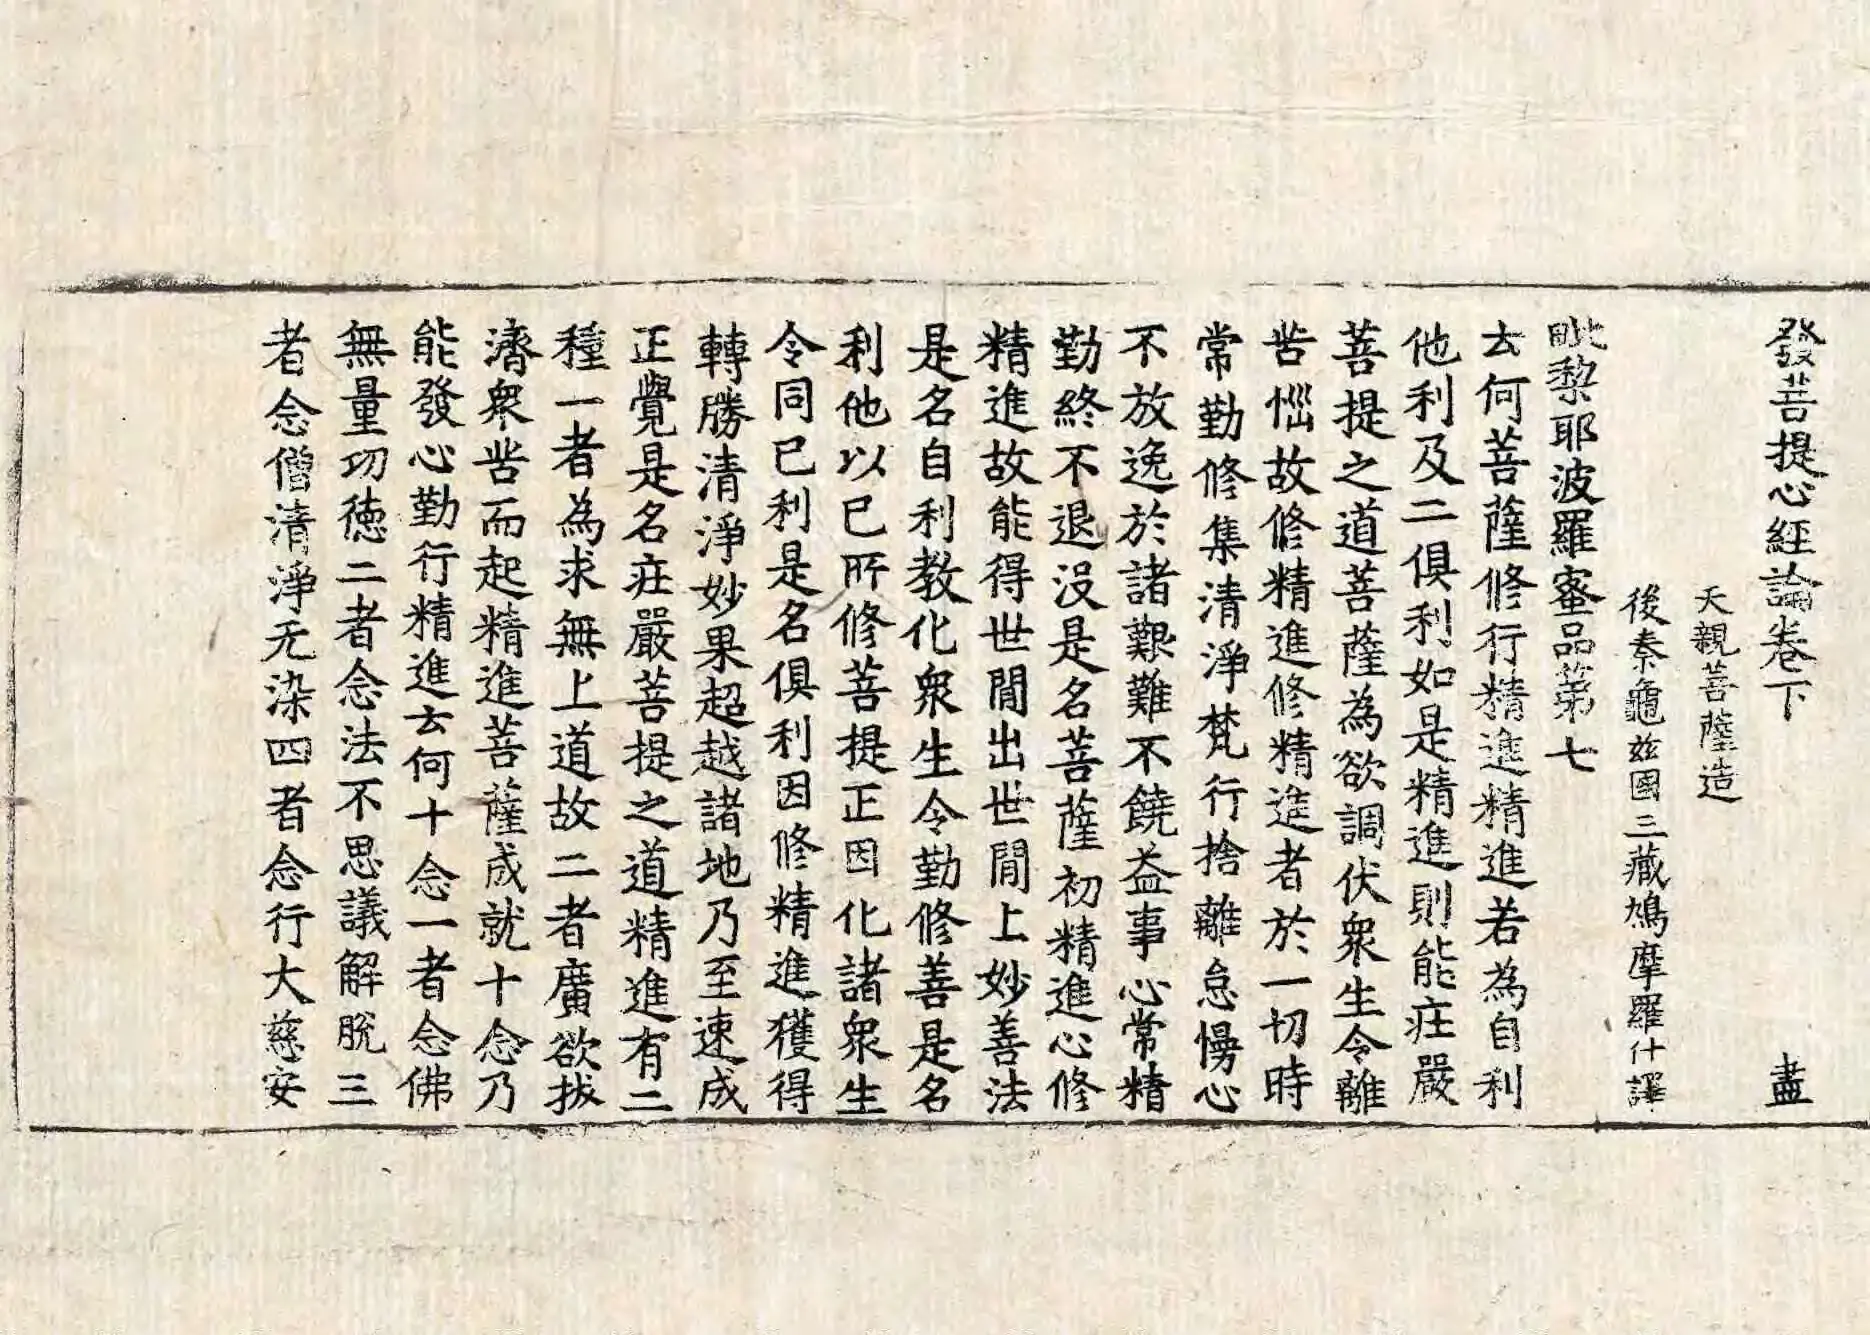 發菩提心經論卷下 盡
天親菩薩造
後秦龜茲國三藏鳩摩羅什譯
毗棃耶波羅蜜品第七
云何菩薩修行精進精進若為自利
他利及二俱利如是精進則能庄嚴
菩提之道菩薩為欲調伏衆生令離
苦惱故修精進修精進者於一切時
常勤修集清淨梵行捨離怠慢心
不放逸於諸艱難不饒益事心常精
勤終不退没是名菩薩初精進心修
精進故能得世閒出世閒上妙善法
是名自利教化衆生令勤修善是名
利他以己所修菩提正因化諸衆生
令同己利是名俱利因修精進獲得
轉勝清淨妙果超越諸地乃至速成
正覺是名庄嚴菩提之道精進有二
種一者為求無上道故二者廣欲拔
濟衆苦而起精進菩薩成就十念乃
能發心勤行精進云何十念一者念佛
無量功德二者念法不思議解脫三
者念僧清淨无染四者念行大慈安